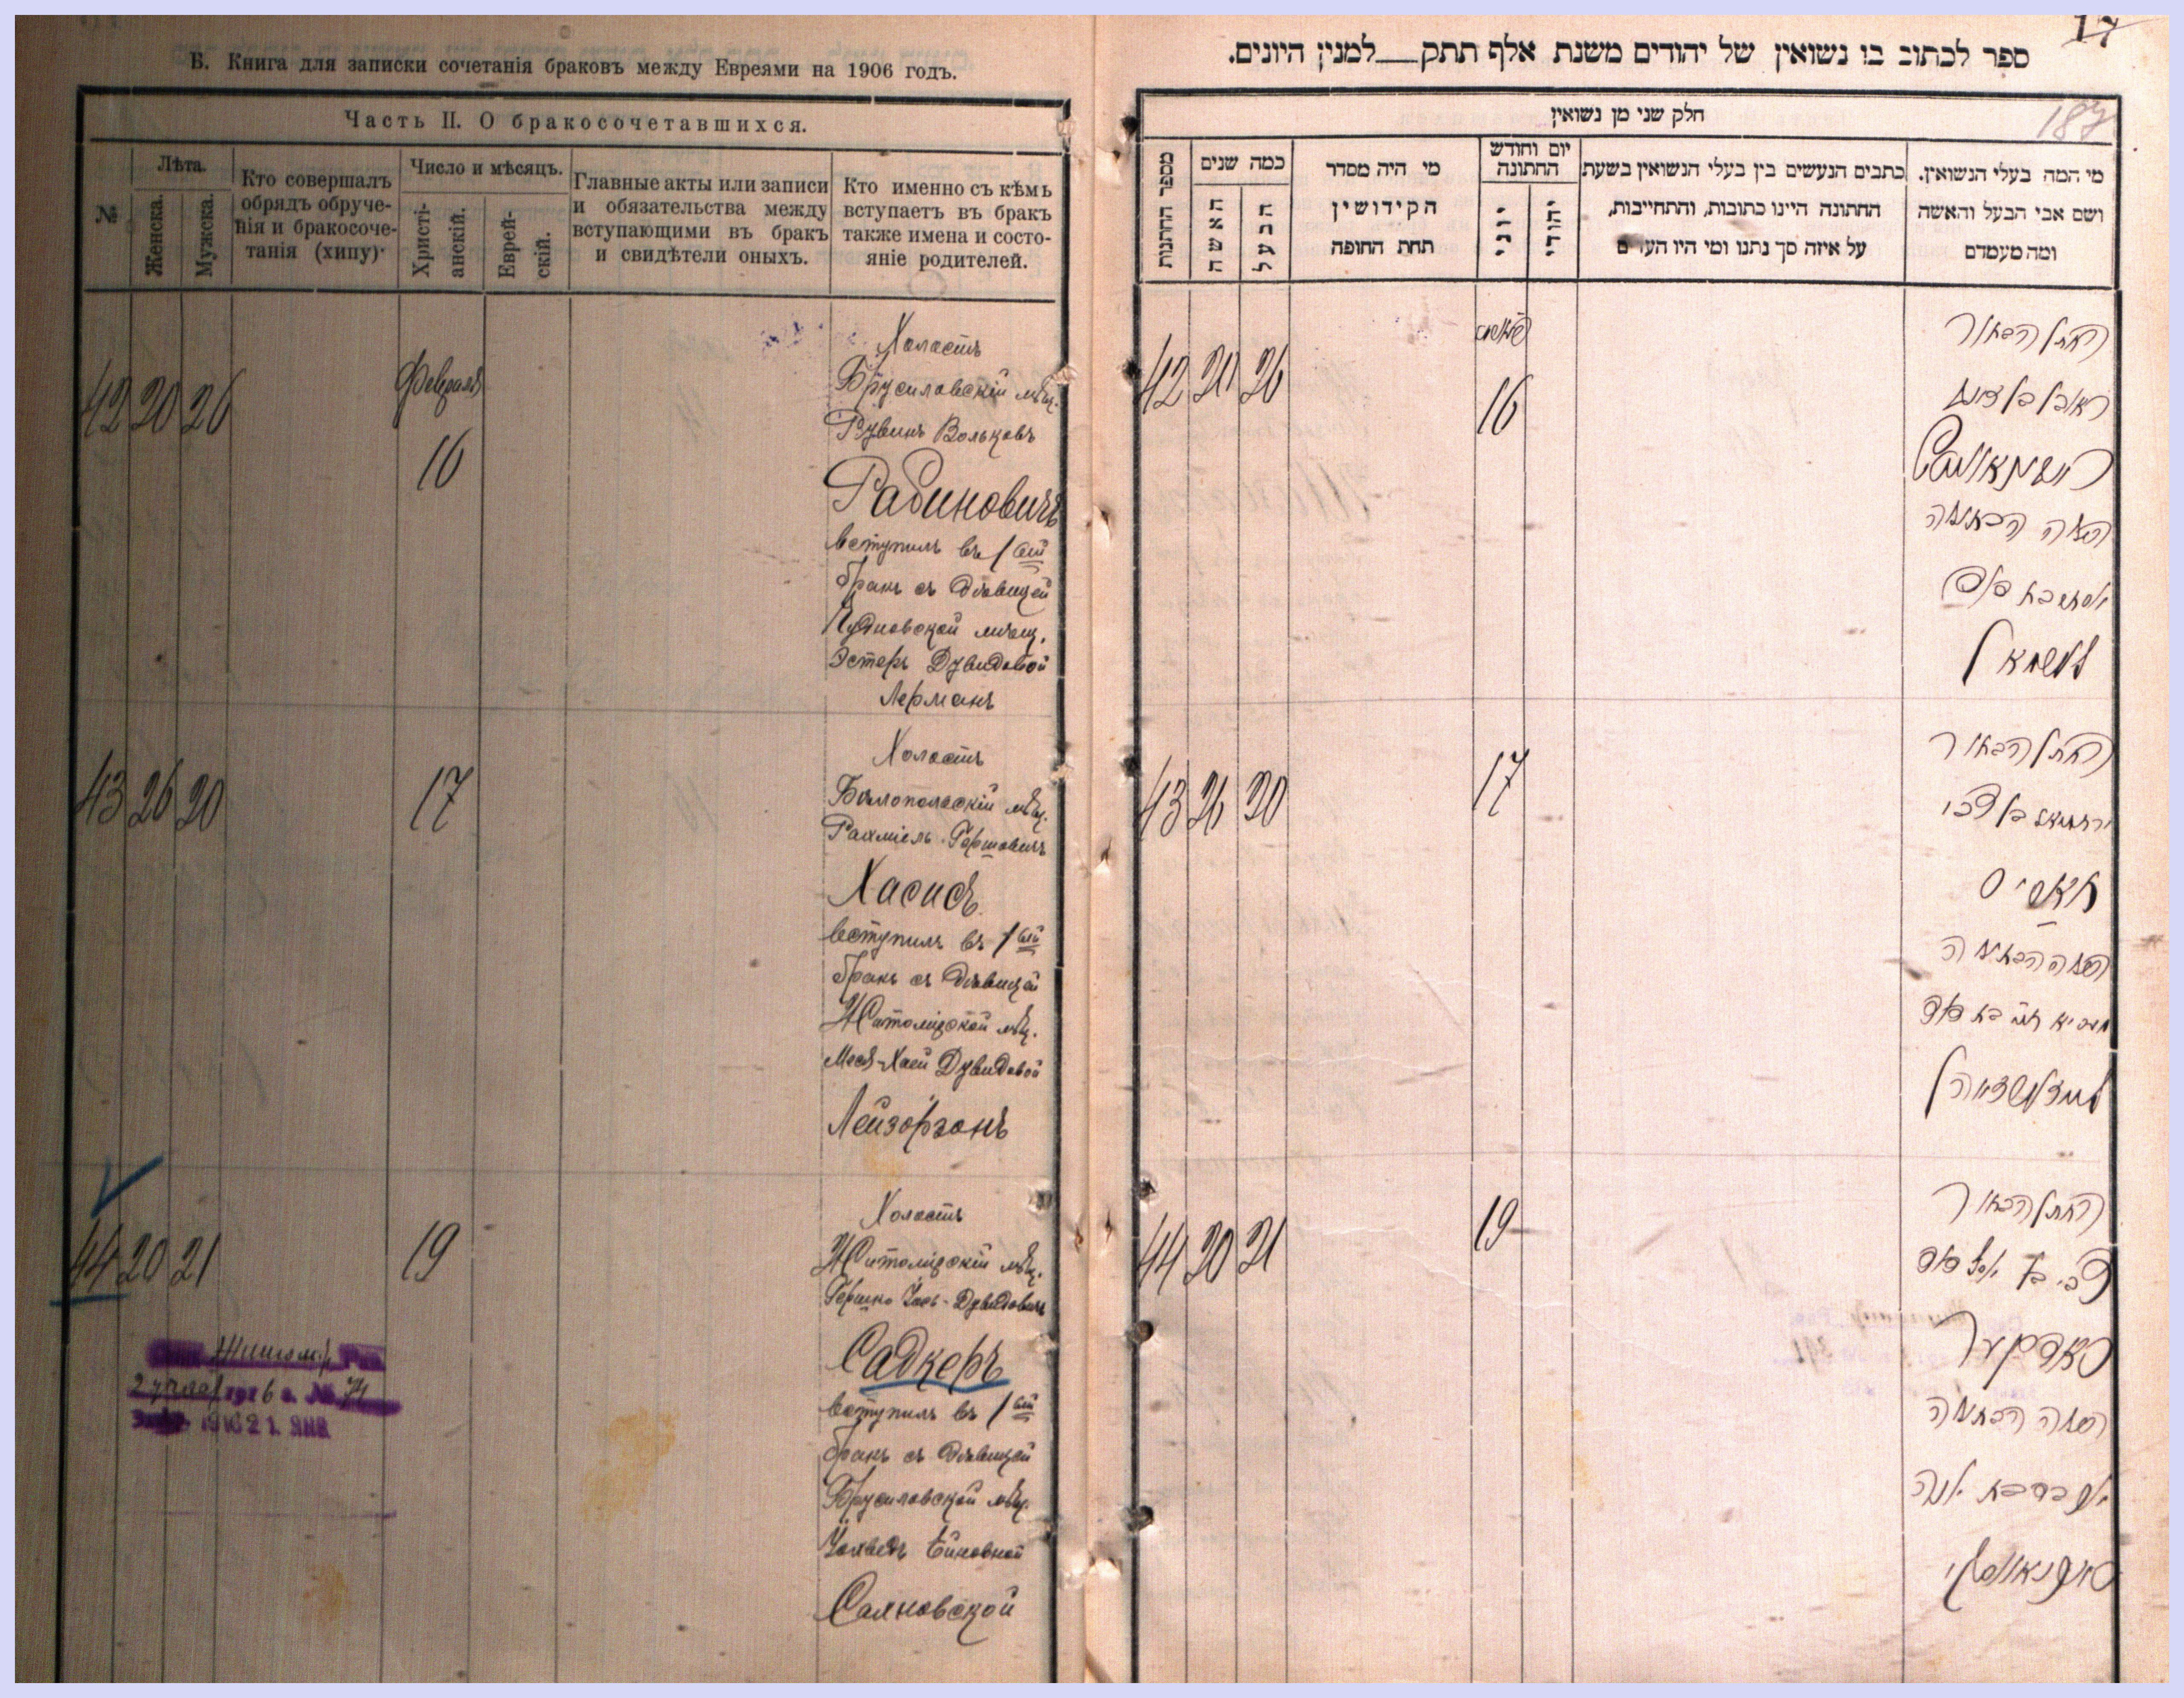 Б. Книга для записки сочетанія браковъ между Евреями на 1906 годъ.
Часть II. О бракосочетавшихся.
№
Лѣта.
Женска.
Мужска.
Кто совершалъ
обрядъ обруче-
нія и бракосоче-
танія (хипу)
Число и мѣсяцъ.
Христі-
анскій.
Еврей-
скій.
Главные акты или записи
и обязательства между
вступающими въ бракъ
и свидѣтели оныхъ.
Кто именно съ кѣмъ
вступаетъ въ бракъ
также имена и состо-
яніе родителей.
42 20 26
Февраля
16
Холостъ
Брусиловскій мѣщ.
Рувинъ Вольковъ
Рабиновичъ
вступилъ въ 1ый
бракъ съ дѣвицей
Чудновской мѣщ.
Эстеръ Дувидовой
Лерманъ
43 26 20
17
Холостъ
Бѣлопольскій мѣщ.
Рахміель Гершовичъ
Хасидъ
вступилъ въ 1ый
бракъ съ дѣвицей
Житомірской мѣщ.
Хаей Дувидовой
Лейзорзонъ
44 20 21
19
Холостъ
Житомірскій мѣщ.
Гершко Дувидовичъ
Садкеръ
вступилъ въ 1ый
бракъ съ дѣвицей
Брусиловской мѣщ.
Саяновской
17
ספר לכתוב בו נשואין של יהודים משנת אלף תתק למנין היונים.
187
חלק שני מן נשואין
מספר החתנות
כמה שנים
האשה
הבעל
מי היה מסדר
הקידושין
תחת החופה
יום וחודש
החתונה
יוני
יהודי
כתבים הנעשים בין בעלי הנשואין בשעת
החתונה היינו כתובות, והתחייבות,
על איזה סך נתנו ומי היו העדים
מי המה בעלי הנשואין.
ושם אבי הבעל והאשה
ומה מעמדם
42 20 26
16
החתן הבחור
ראובן בן
ראבינאוויטש
הכלה הבתולה
אסתר בת דוד
לערמאן
43 26 20
17
החתן הבחור
ירחמיאל בן צבי
חאסיד
הכלה הבתולה
חיה בת דוד
44 20 21
19
החתן הבחור
צבי בן דוד
סאדקער
הכלה הבתולה